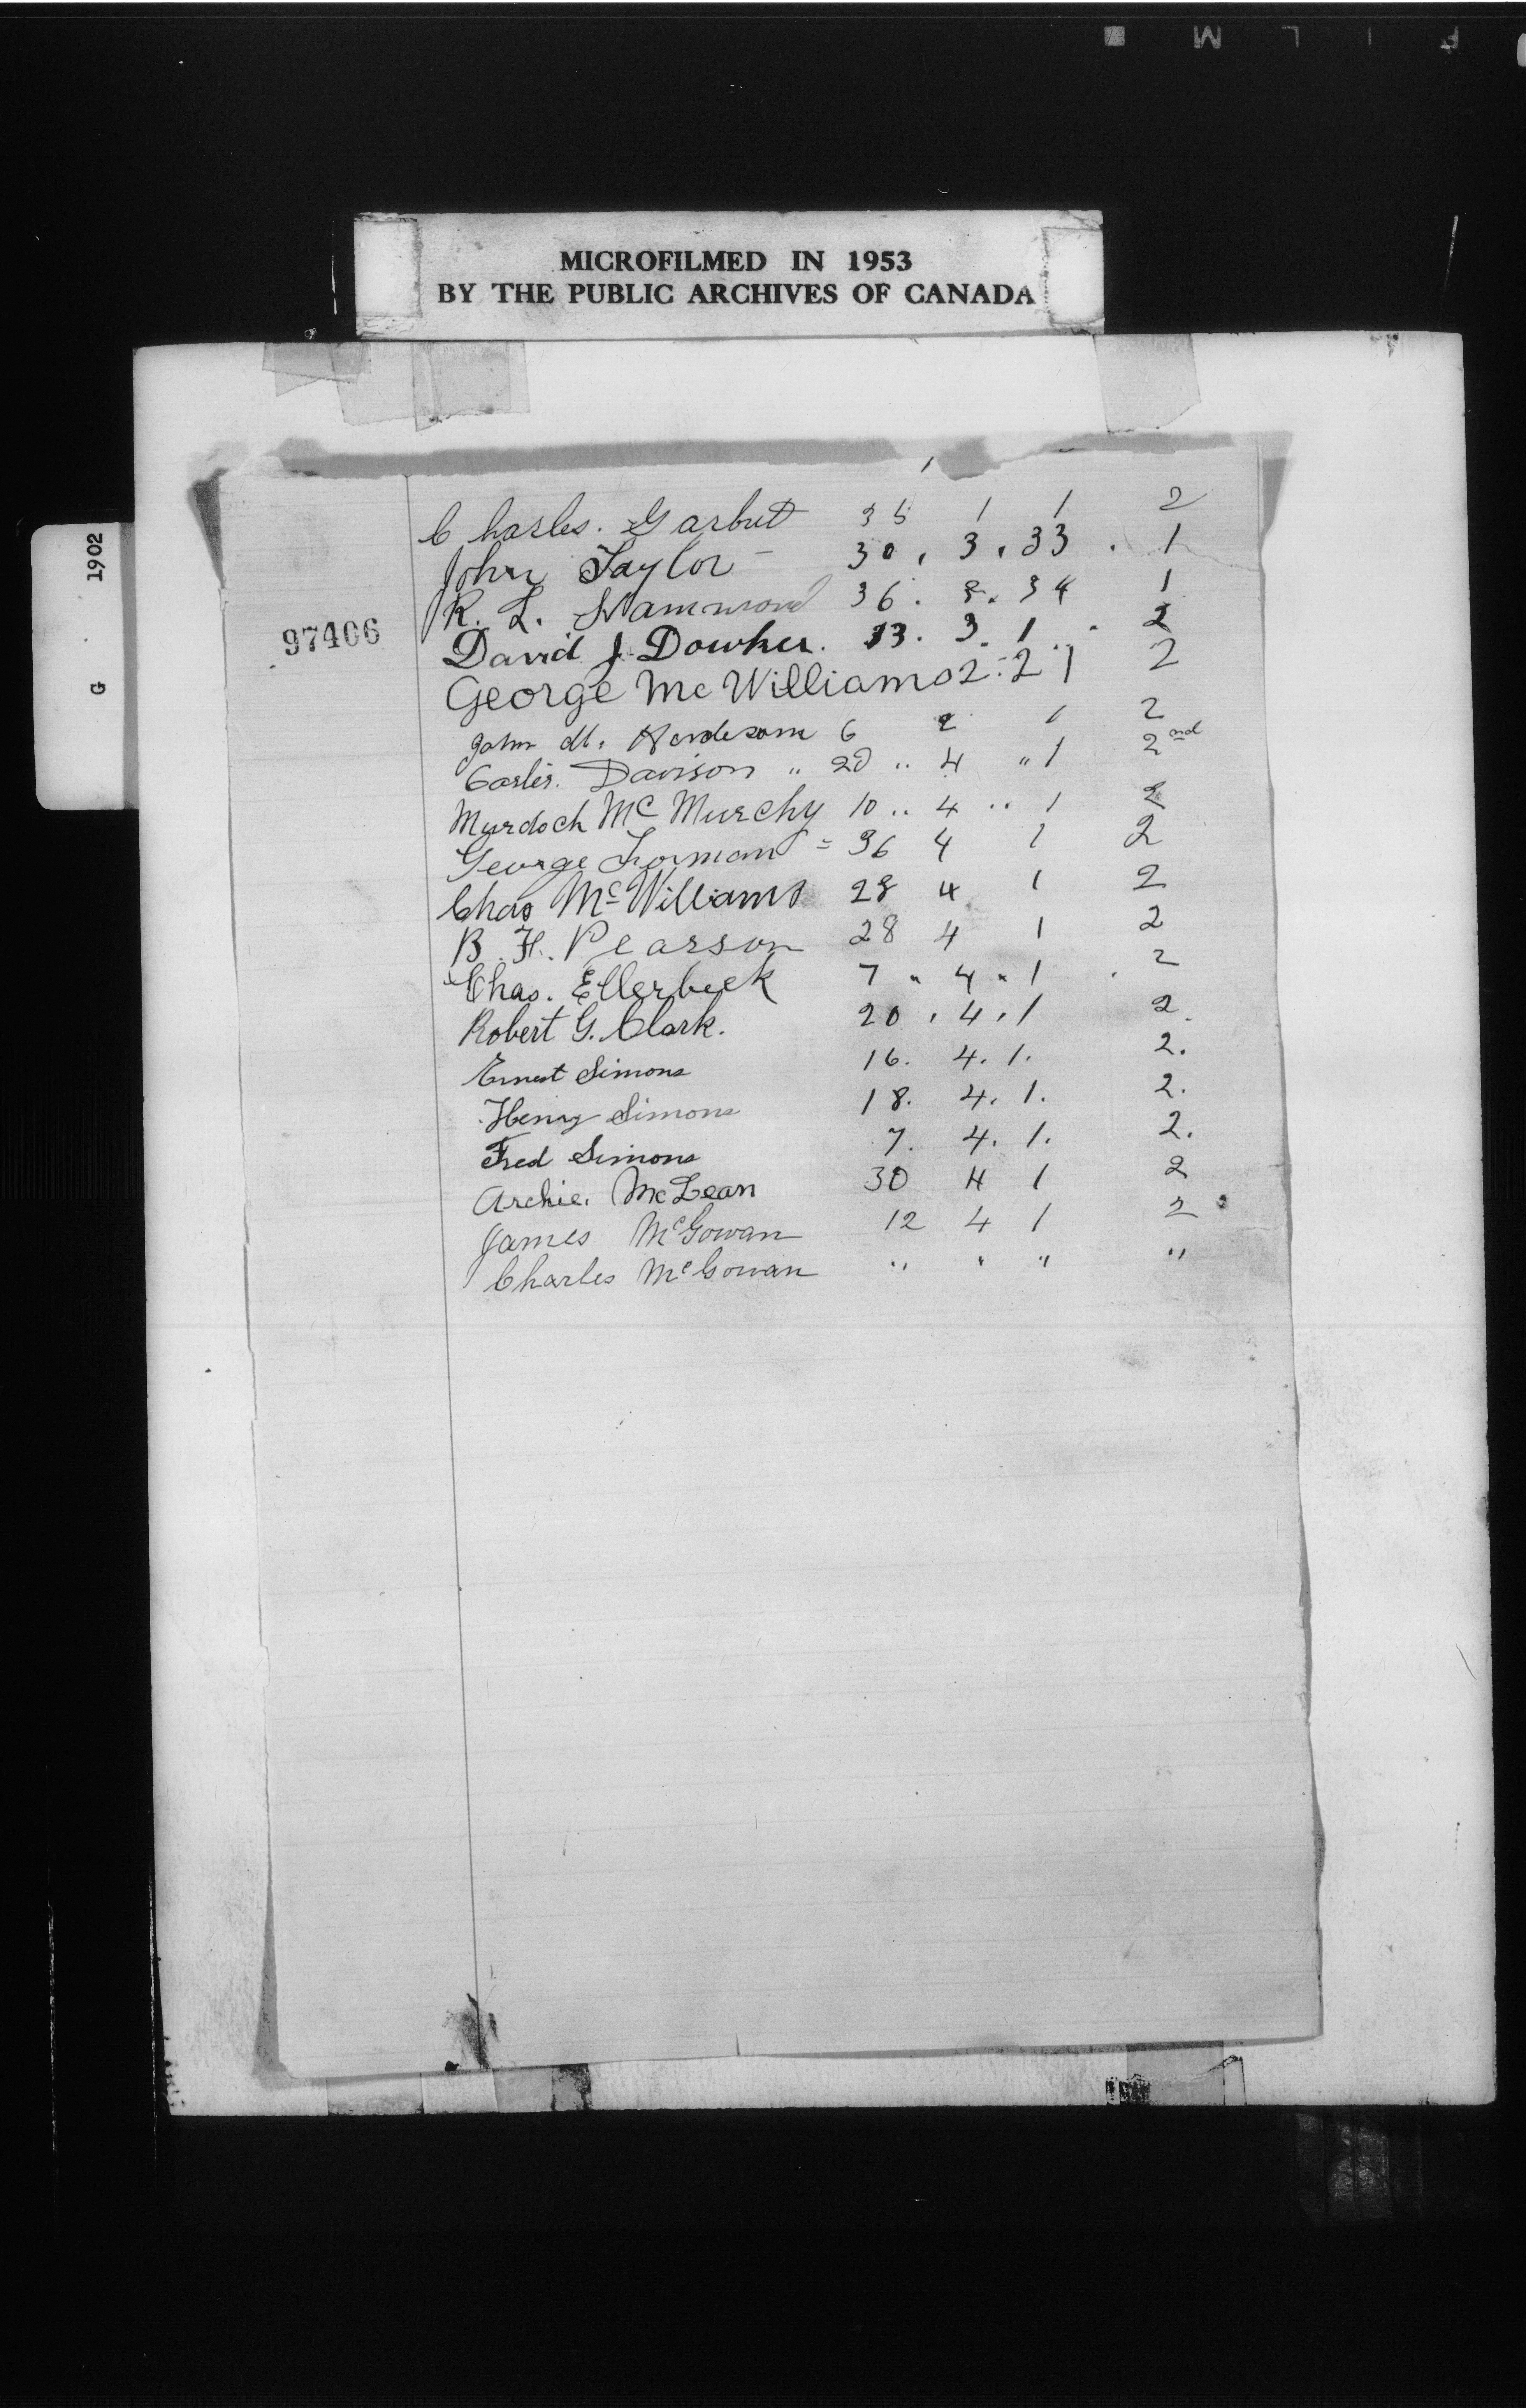 F I L M
MICROFILMED IN 1953
BY THE PUBLIC ARCHIVES OF CANADA
G 1902
97406
Charles. Garbut 35 1 1 2
John Taylor - 30 . 3 . 33 . 1
R. L. Hammond 36 . 3 . 34 1
David J. Dowker. 33 . 3 . 1 . 2
George Mc Williams 2 : 2 1 2
John M. Henderson 6 2 1 2
Carlis. Davison " 20 .. 4 " 1 2nd
Murdoch Mc Murchy 10 .. 4 .. 1 2
George Lorman = 36 4 1 2
Chas McWilliams 28 4 1 2
B. H. Pearson 28 4 1 2
Chas. Ellerbeck 7 " 4 " 1 . 2
Robert G. Clark. 20 . 4 . 1 2.
Ernest Simons 16. 4. 1. 2.
Henry Simons 18. 4. 1. 2.
Fred Simons 7. 4. 1. 2.
Archie. McLean 30 4 1 2
James McGowan 12 4 1 2
Charles McGowan " " " "